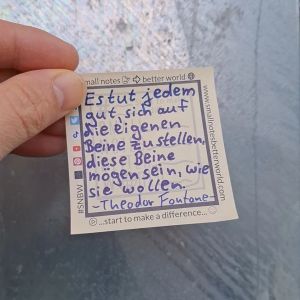 small notes better world
Es tut jedem
gut, sich auf
die eigenen
Beine zu stellen,
diese Beine
mögen sein, wie
sie wollen.
-Theodor Fontane-
...start to make a difference...
#SNBW
www.smallnotesbetterworld.com